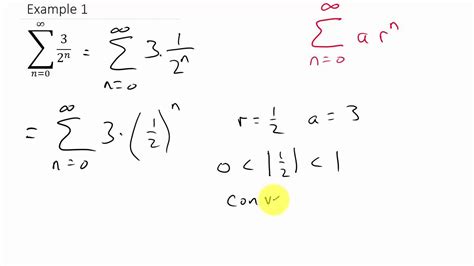 Example 1
∞ ∑ n=0 3/2ⁿ = ∞ ∑ n=0 3·1/2ⁿ
∞ ∑ n=0 a rⁿ
= ∞ ∑ n=0 3·(1/2)ⁿ
r = 1/2 a = 3
0 < |1/2| < 1
conv